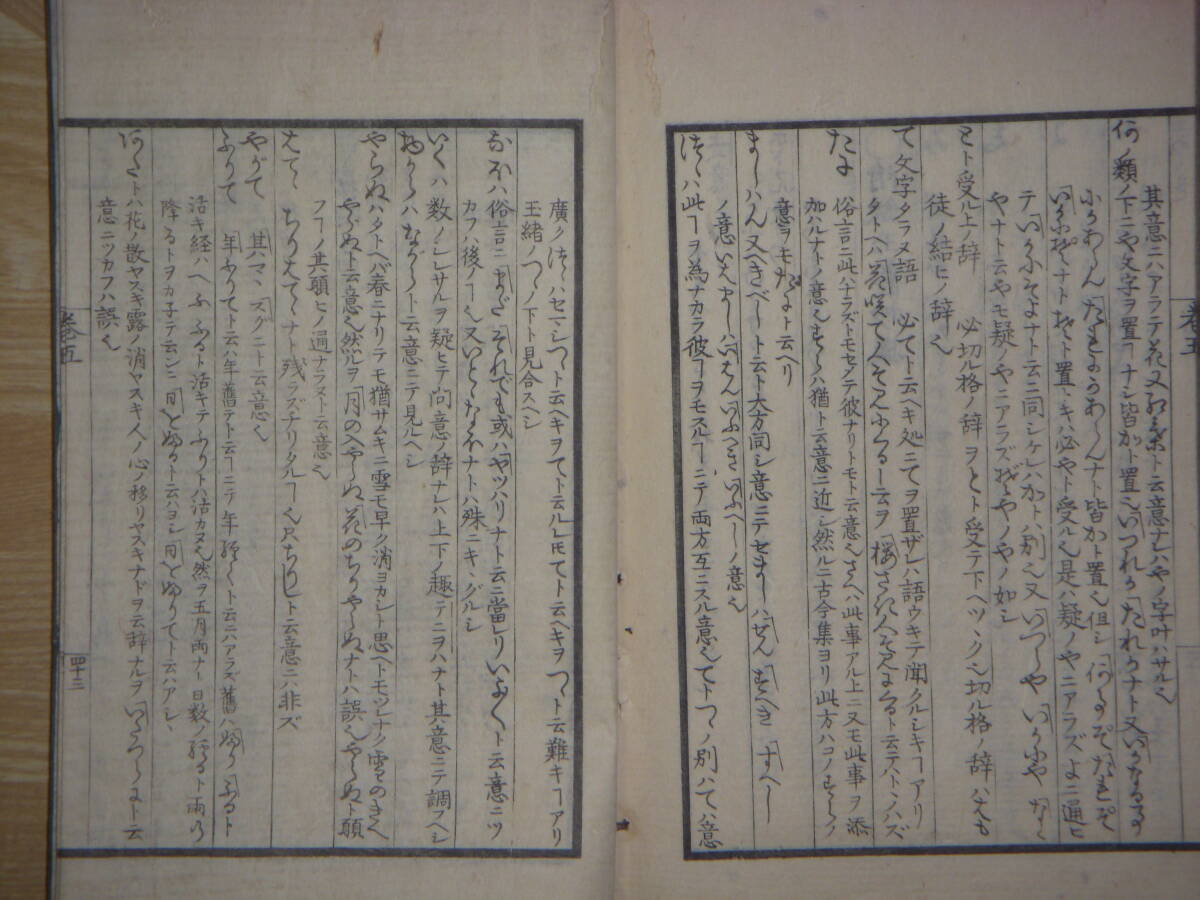 其意ニハアラテ花又紅葉ト云意ナレハヤノ字叶ハサル也
何ノ類ノ下ニや文字ヲ置ヿナシ皆かト置也いつれか たれかナト又いかなるか
ナト皆かト置也但シ 何しかそ たれそ
いかにそナトぞト置ヽキハ必や受ル也是ハ疑ノヤニアラズよニ通ヒ
テいかにそよナト云ニ同シケレハかトハ別也又いつしや いかにや なくや
やナト云やモ疑ノやニアラズ ヤノ如シ
とト受ル上ノ辞 必切ル格ノ辞ヲとト受テ下ヘツヽク也切ル格ノ辞ハ
徒ノ結ヒノ辞也
て文字タラヌ語 必てト云ヘキ処ニてヲ置ザレハ語ウキテ聞クルシキヿアリ
タトヘハ花咲て人そ ヲ桜さけ人そ ト云テハトヽノハズ
たに 俗言ニ此ハナラズトモセメテ彼ナリトモト云意也さへハ此事アル上ニ又モ此事ヲ添
加ハルナトノ意也すらハ猶ト云意ニ近シ然ルニ古今集ヨリ此方ハコノすらノ
意ヲモだにト云ヘリ
ましハん又べきべしト云ト大方同シ意ニテせましハせん すべき すべし
ノ意いはましハいはん いふべき いふべしノ意也
つヽハ此ヿヲ為ナカラ彼ヿヲモスルヿニテ両方互ニスル意也てトつヽノ別ハてハ意
廣クつヽハセマシつヽト云ヘキヲてト云ル㇇モてト云ヘキヲつヽト云難キヿアリ
玉緒ノつヽノ下ト見合スヘシ
なほハ俗言ニまだ それでも或ハヤッハリナト云ニ當レリいよ〳〵ト云意ニツ
カフハ後ノヿ也又いとヽなほナトハ殊ニキヽグルシ
いくハ数ノシレサルヲ疑ヒテ問意ノ辞ナレハ上下ノ趣テニヲハナト其意ニテ調フヘシ
ながらハながら〳〵ト云意ニテ見ルヘシ
やらぬハタトヘバ春ニナリテモ猶サムキニ雪モ早ク消ヨカシト思ヘトモツレナク雪のきえ
やらぬト云意也然ルヲ月の入やらぬ 花のちりやらぬナトハ誤也やらぬト願
フヿノ其願ヒノ通ナラズト云意也
はてヽ ちりはてヽナト残ラズチリタルヿ也只ちりしト云意ニハ非ズ
やがて 其マヽ ズグニト云意也
ふりて 年ふりてト云ハ年舊テト云ヿニテ年経〳〵ト云ニハアラズ舊ハふり ふるト
活キ経ハヘ ふ ふるト活キテふりトハ活カヌ也然ヲ五月雨ナト日数ノ経るト雨ノ
降るトヲカ子テ云シニ日をふるト云ハヨシ日をふりてト云ハアシ
あたト ハ花ノ散ヤスキ露ノ消ヤスキ人ノ心ノ移リヤスキナドヲ云辞ナルヲいたつらにト云
意ニツカフハ誤也
巻五
四十三
巻五